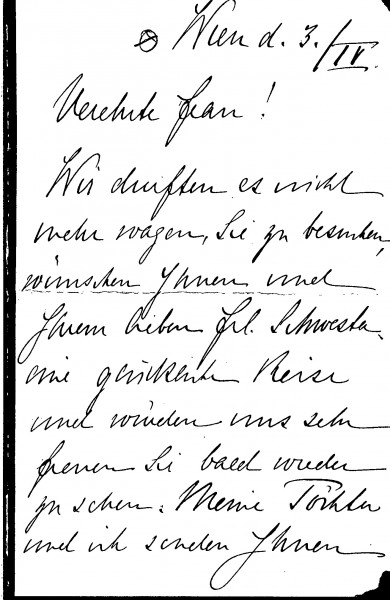 Wien d. 3./IV.
Verehrte Frau!
Wir durften es nicht
mehr wagen, Sie zu besuchen,
wünschen Ihnen und
Ihrem lieben Frl. Schwester
eine Reise
und würden uns sehr
freuen Sie bald wieder
zu sehen. Meine Töchter
und ich senden Ihnen